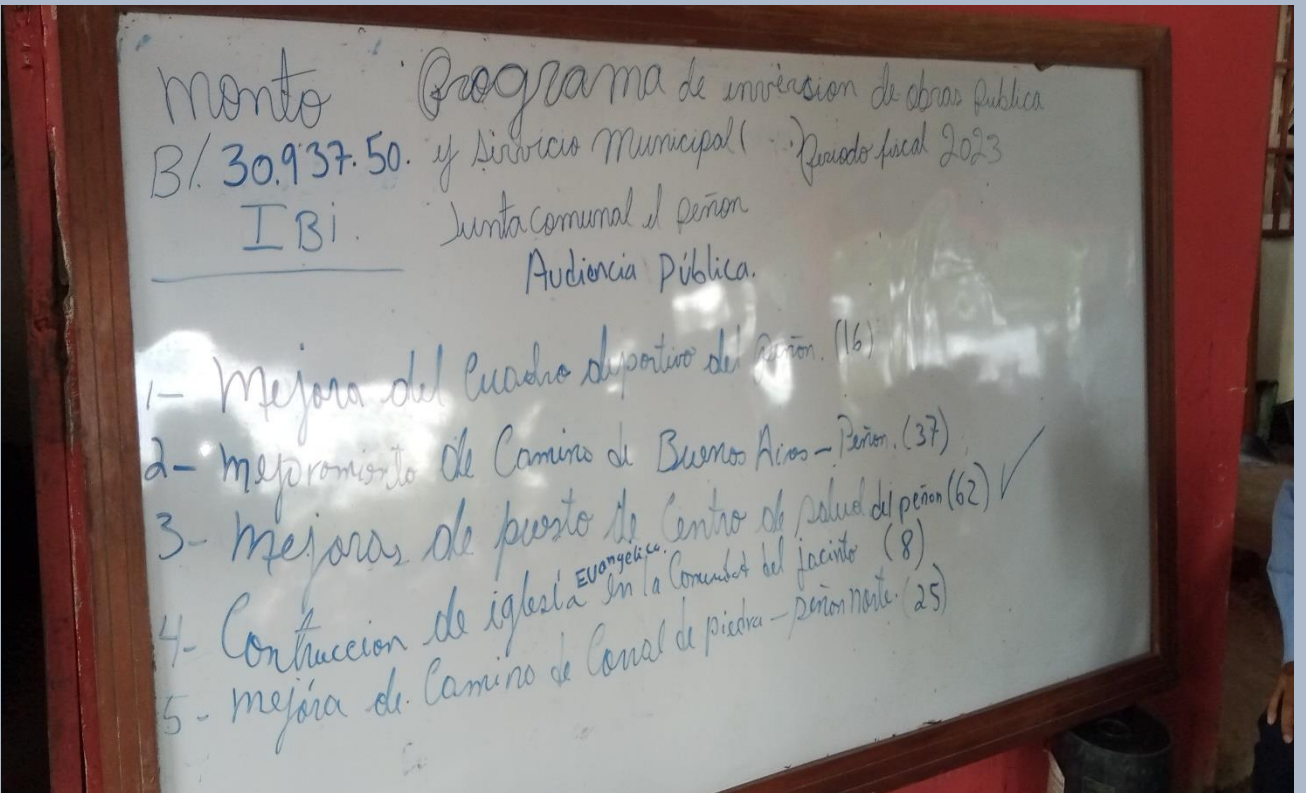 Monto Programa de inversion de obras publica
B/. 30.937.50. y Sirvicio Municipal ( Periodo fiscal 2023
IBi. Junta comunal el peñon
Audiencia Pública.
1- Mejora del Cuadro deportivo del peñon. (16)
2- mejoramiento de Camino de Buenos Aires - Peñon. (37)
3- Mejoras de puesto de Centro de salud del peñon (62) ✓
4- Contruccion de iglesia Evangelica. en la Comunidad del jacinto (8)
5- mejora de. Camino de Corral de piedra - peñon norte. (25)